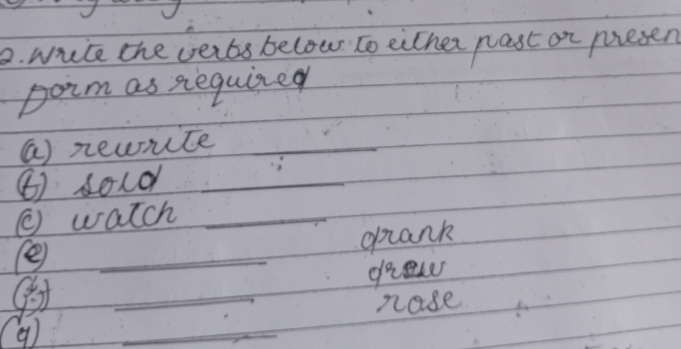 2. Write the verbs below to either past or presen
form as required
(a) rewrite
(b) sold
(c) watch
(e) drank
(f) drew
(g) rose